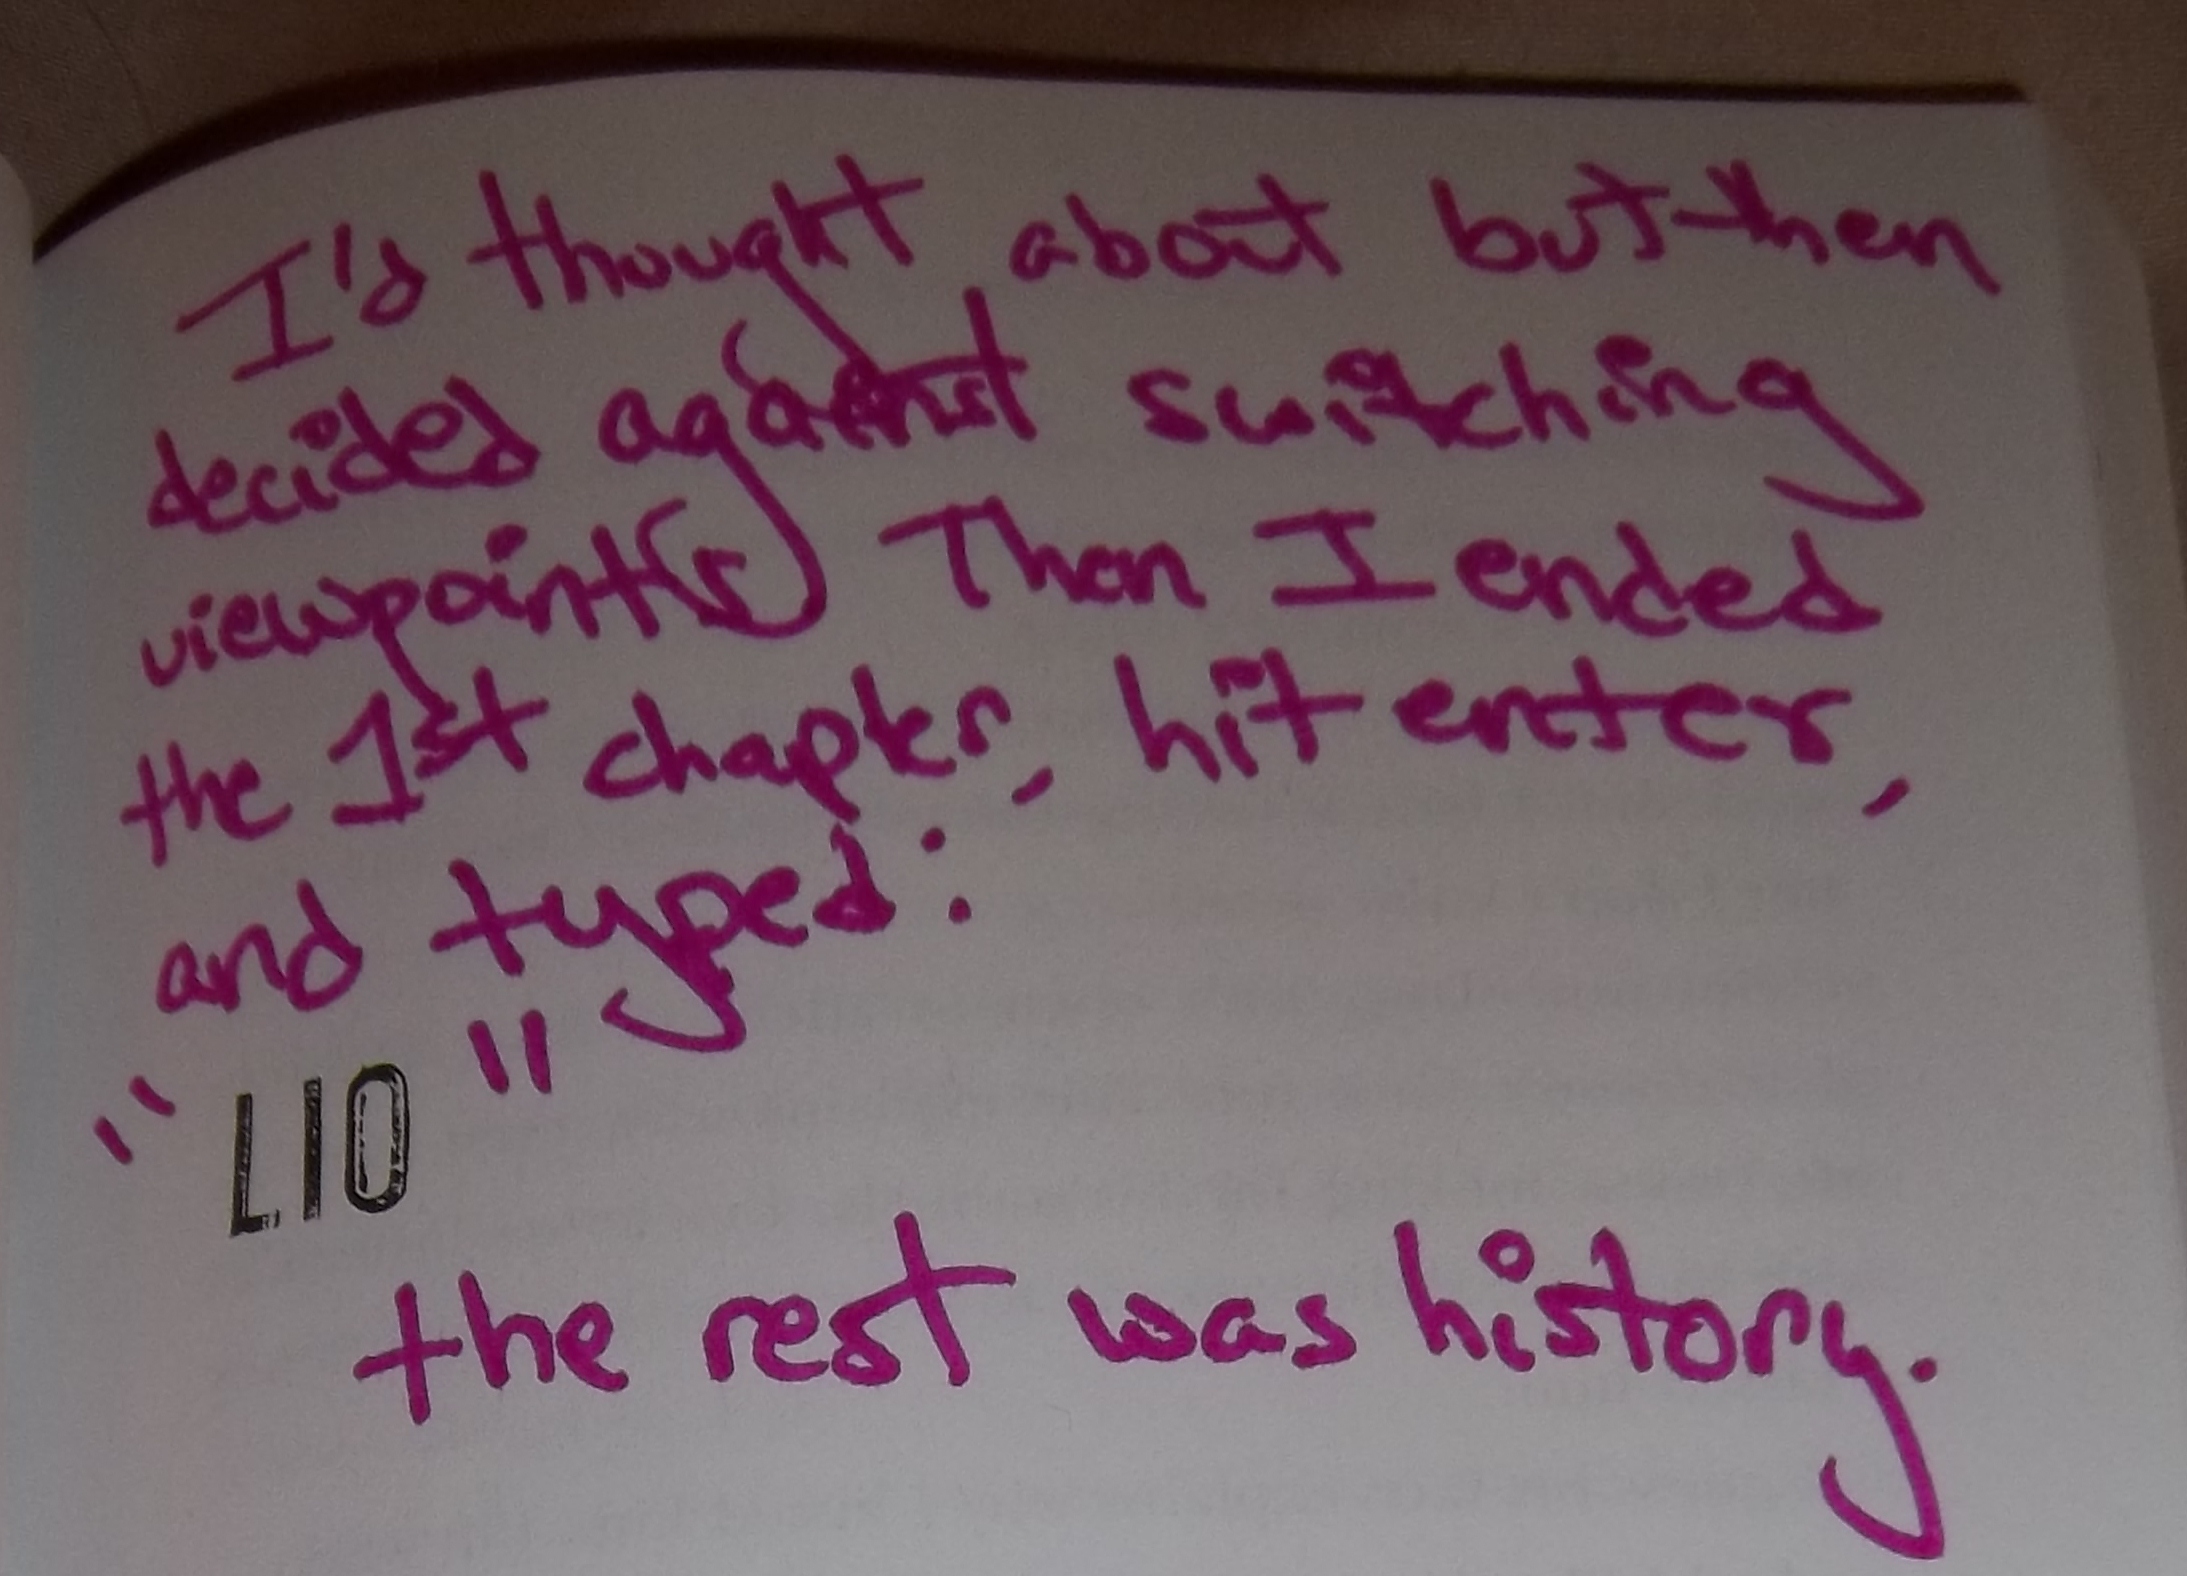 I'd thought about but then
decided against switching
viewpoint(s) Then I ended
the 1st chapter, hit enter,
and typed:
"LIO"
the rest was history.